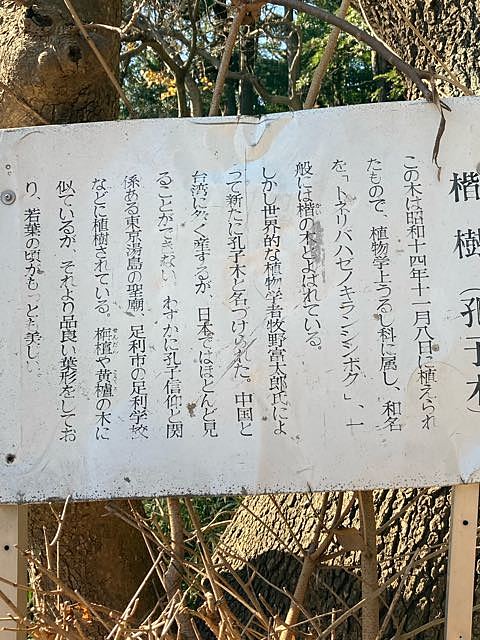 楷樹（孔子木
この木は昭和十四年十一月八日に植えられ
たもので、植物学上うるし科に属し、和名
を「トネリバハゼノキランシンボク」、一
般には楷の木とよばれている。
しかし世界的な植物学者牧野富太郎氏によ
って新たに孔子木と名づけられた。中国と
台湾に多く産するが、日本ではほとんど見
ることができない。わずかに孔子信仰と関
係ある東京湯島の聖廟、足利市の足利学校
などに植樹されている。栴檀や黄櫨の木に
似ているが、それより品良い葉形をしてお
り、若葉の頃がもっとも美しい。